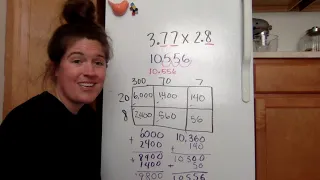 3.77 x 2.8
10.556
10.556
300 70 7
20 6,000 1400 140
8 2400 560 56
6000 10,360
+ 2400 + 140
8400 10500
+ 1400 + 56
9800 10556